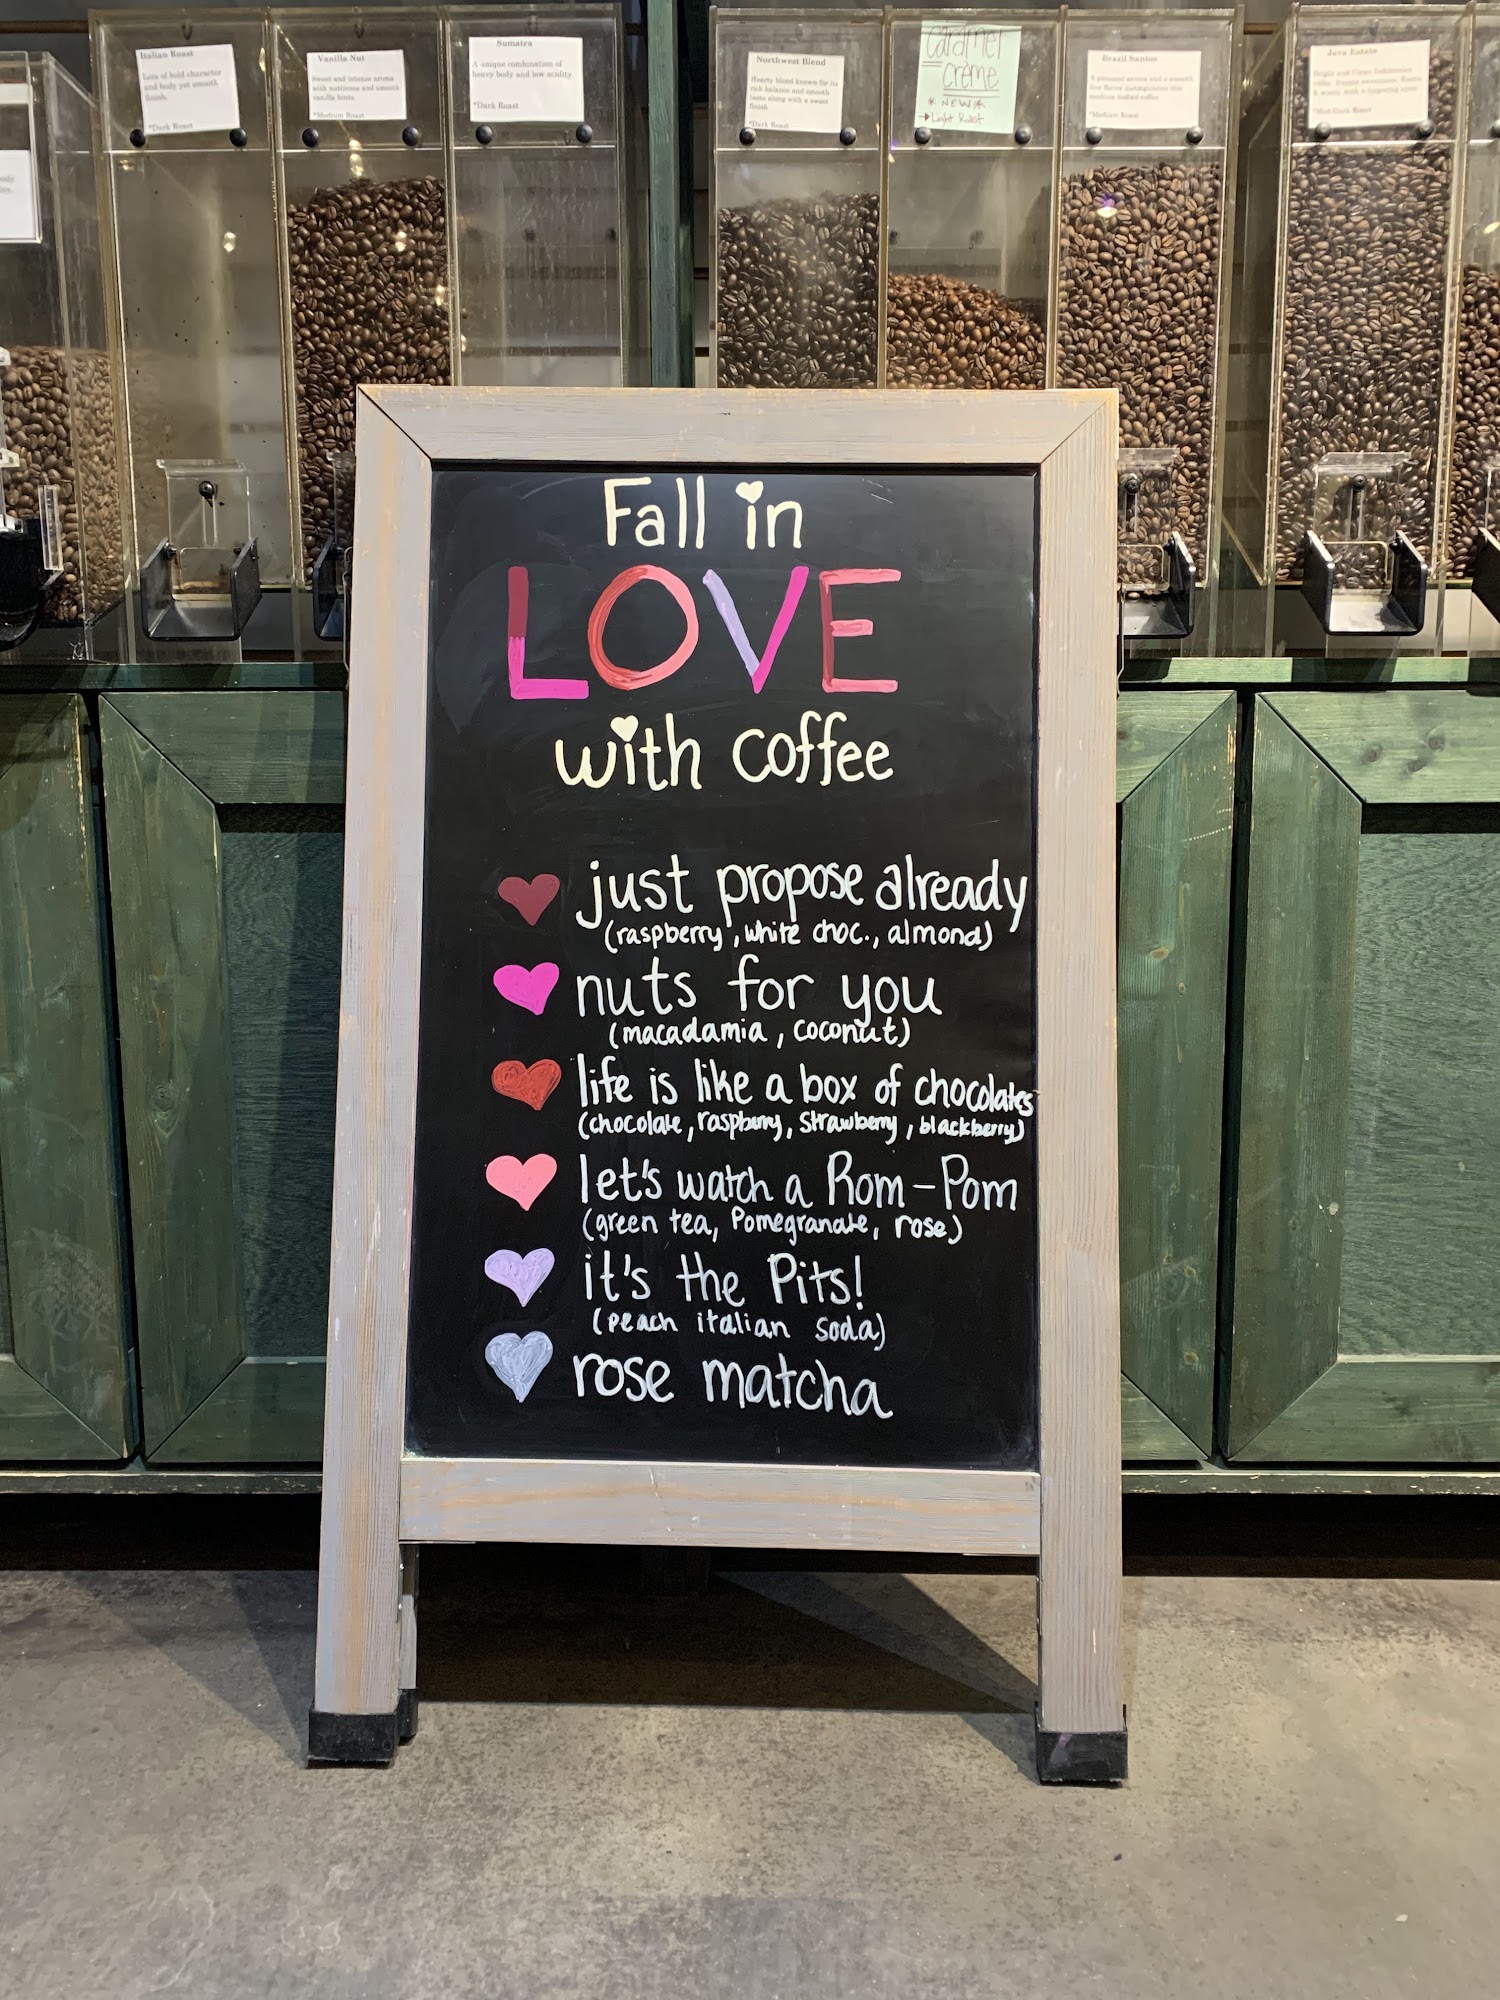 Italian Roast
Lots of bold character
and body yet smooth
finish.
*Dark Roast
Vanilla Nut
Sweet and intense aroma
with nuttiness and smooth
vanilla hints
*Medium Roast
Sumatra
A unique combination of
heavy body and low acidity.
*Dark Roast
Northwest Blend
Hearty blend known for its
rich balance and smooth
taste along with a sweet
finish
*Dark Roast
Caramel
Crème
*NEW*
→Light Roast
Brazil Santos
A pleasant aroma and a smooth
fine flavor distinguishes this
medium bodied coffee
*Medium Roast
Java Estate
Fall in
LOVE
with coffee
just propose already
(raspberry, white choc., almond)
nuts for you
(macadamia, coconut)
life is like a box of chocolates
(chocolate, raspberry, strawberry, blackberry)
let's watch a Rom-Pom
(green tea, Pomegranate, rose)
it's the Pits!
(peach italian soda)
rose matcha